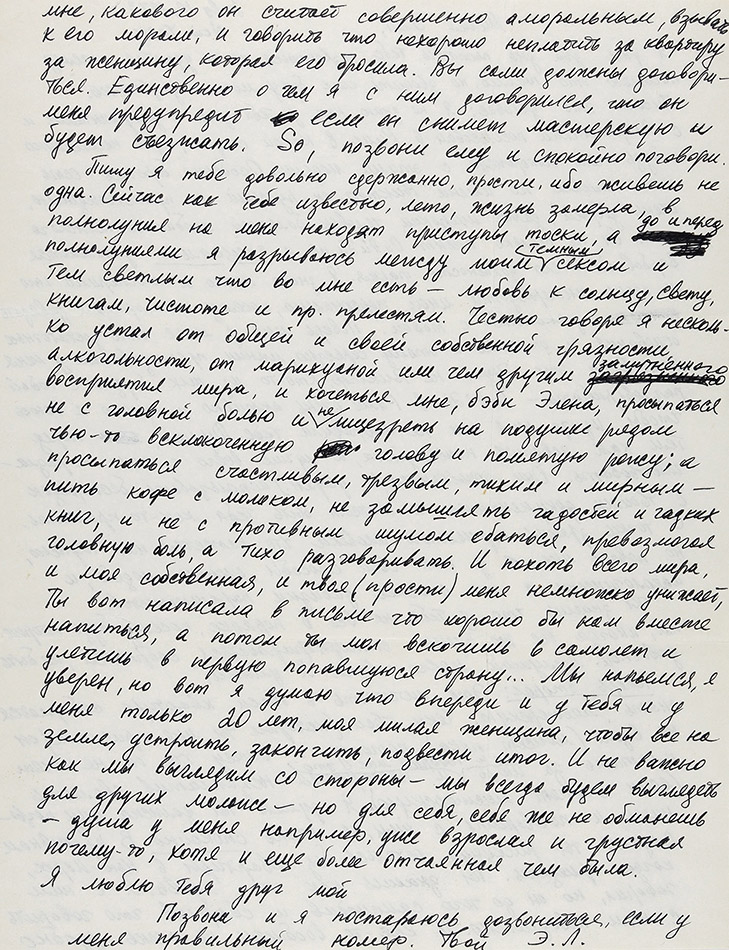 мне, какового он считает совершенно аморальным, взывать
к его морали, и говорить что нехорошо неплатить за квартиру
за женщину, которая его бросила. Вы сами должны договори-
ться. Единственно о чем я с ним договорился, что он
меня предупредит если он снимет мастерскую и
будет съезжать. So, позвони ему и спокойно поговори.
Пишу я тебе довольно сдержанно, прости, ибо живешь не
одна. Сейчас как тебе известно, лето, жизнь замерла, в
полнолуния на меня находят приступы тоски, а до и перед
полнолуниями я разрываюсь между моим темным сексом и
тем светлым что во мне есть — любовь к солнцу, свету,
книгам, чистоте и пр. прелестям. Честью говоря я несколь-
ко устал от общей и своей собственной грязности,
алкогольности, от марихуаной или чем другим замутненного
восприятия мира, и хочеться мне, бэби Элена, просыпаться
не с головной болью и не лицезреть на подушке рядом
чью-то всклокоченную голову и помятую рожу; а
просыпаться счастливым, трезвым, тихим и мирным —
пить кофе с молоком, не замышлять гадостей и гадких
книг, и не с противным шумом ебаться, превозмогая
головную боль, а тихо разговаривать. И похоть всего мира,
и моя собственная, и твоя (прости) меня немножко унижает,
Ты вот написала в письме что хорошо бы нам вместе
напиться, а потом ты мол вскочишь в самолет и
улетишь в первую попавшуюся страну... Мы напьемся, я
уверен, но вот я думаю что впереди и у тебя и у
меня только 20 лет, моя милая женщина, чтобы все на
земле, устроить, закончить, подвести итог. И не важно
как мы выглядим со стороны — мы всегда будем выглядеть
для других моложе — но для себя, себя же не обманешь
— душа у меня например, уже взрослая и грустная
почему-то, хотя и еще более отчаянная чем была.
Я люблю тебя друг мой
Позвони и я постараюсь дозвониться, если у
меня правильный номер. Твой Э.Л.